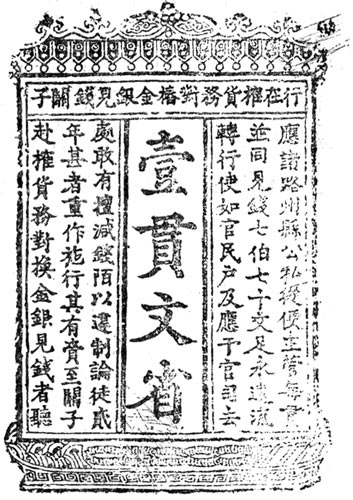 行在榷貨務對樁金銀見錢關子
應諸路州縣公私從便主管每貫
並同見錢七伯七十文足永遠流
轉行使如官民户及應干官司去
壹貫文省
處敢有擅減錢陌以違制論徒貳
年甚者重作施行其有賫至關子
赴榷貨務對換金銀見錢者聽